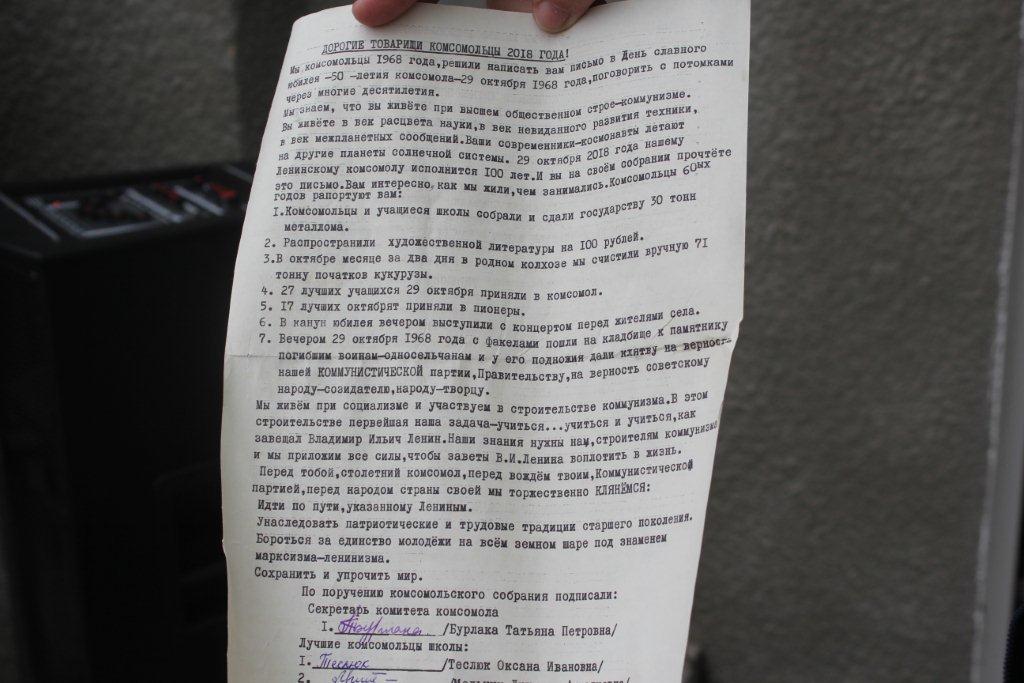 ДОРОГИЕ ТОВАРИЩИ КОМСОМОЛЬЦЫ 2018 ГОДА!
Мы комсомольцы 1968 года,решили написать вам письмо в День славного
юбилея -50 -летия комсомола-29 октября 1968 года,поговорить с потомками
через многие десятилетия.
Мы знаем, что вы живёте при высшем общественном строе-коммунизме.
Вы живёте в век расцвета науки,в век невиданного развития техники,
в век межпланетных сообщений.Ваши современники-космонавты летают
на другие планеты солнечной системы. 29 октября 2018 года нашему
Ленинскому комсомолу исполнится 100 лет.И вы на своём собрании прочтёте
это письмо.Вам интересно,как мы жили,чем занимались.Комсомольцы 60ых
годов рапортуют вам:
1.Комсомольцы и учащиеся школы собрали и сдали государству 30 тонн
металлома.
2. Распространили художественной литературы на 100 рублей.
3.В октябре месяце за два дня в родном колхозе мы счистили вручную 71
тонну початков кукурузы.
4. 27 лучших учащихся 29 октября приняли в комсомол.
5. 17 лучших октябрят приняли в пионеры.
6. В канун юбилея вечером выступили с концертом перед жителями села.
7. Вечером 29 октября 1968 года с факелами пошли на кладбище к памятнику
погибшим воинам-односельчанам и у его подножия дали клятву на верность
нашей КОММУНИСТИЧЕСКОЙ партии,Правительству,на верность советскому
народу-созидателю,народу-творцу.
Мы живём при социализме и участвуем в строительстве коммунизма.В этом
строительстве первейшая наша задача-учиться...учиться и учиться,как
завещал Владимир Ильич Ленин.Наши знания нужны нам,строителям коммунизма
и мы приложим все силы,чтобы заветы В.И.Ленина воплотить в жизнь.
Перед тобой,столетний комсомол,перед вождём твоим,Коммунистической
партией,перед народом страны своей мы торжественно КЛЯНЁМСЯ:
Идти по пути,указанному Лениным.
Унаследовать патриотические и трудовые традиции старшего поколения.
Бороться за единство молодёжи на всём земном шаре под знаменем
марксизма-ленинизма.
Сохранить и упрочить мир.
По поручению комсомольского собрания подписали:
Секретарь комитета комсомола
1. /Бурлака Татьяна Петровна/
Лучшие комсомольцы школы:
1. Теслюк /Теслюк Оксана Ивановна/
2.